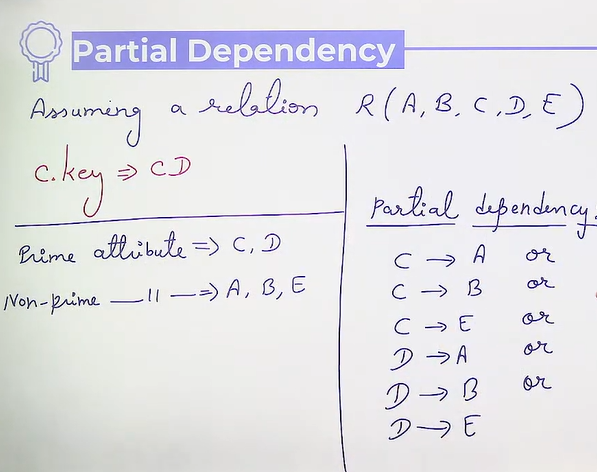 Partial Dependency
Assuming a relation R(A, B, C, D, E)
C.key => CD
Prime attribute => C, D
Non-prime —11—=> A, B, E
Partial dependency.
C → A or
C → B or
C → E or
D → A or
D → B or
D → E